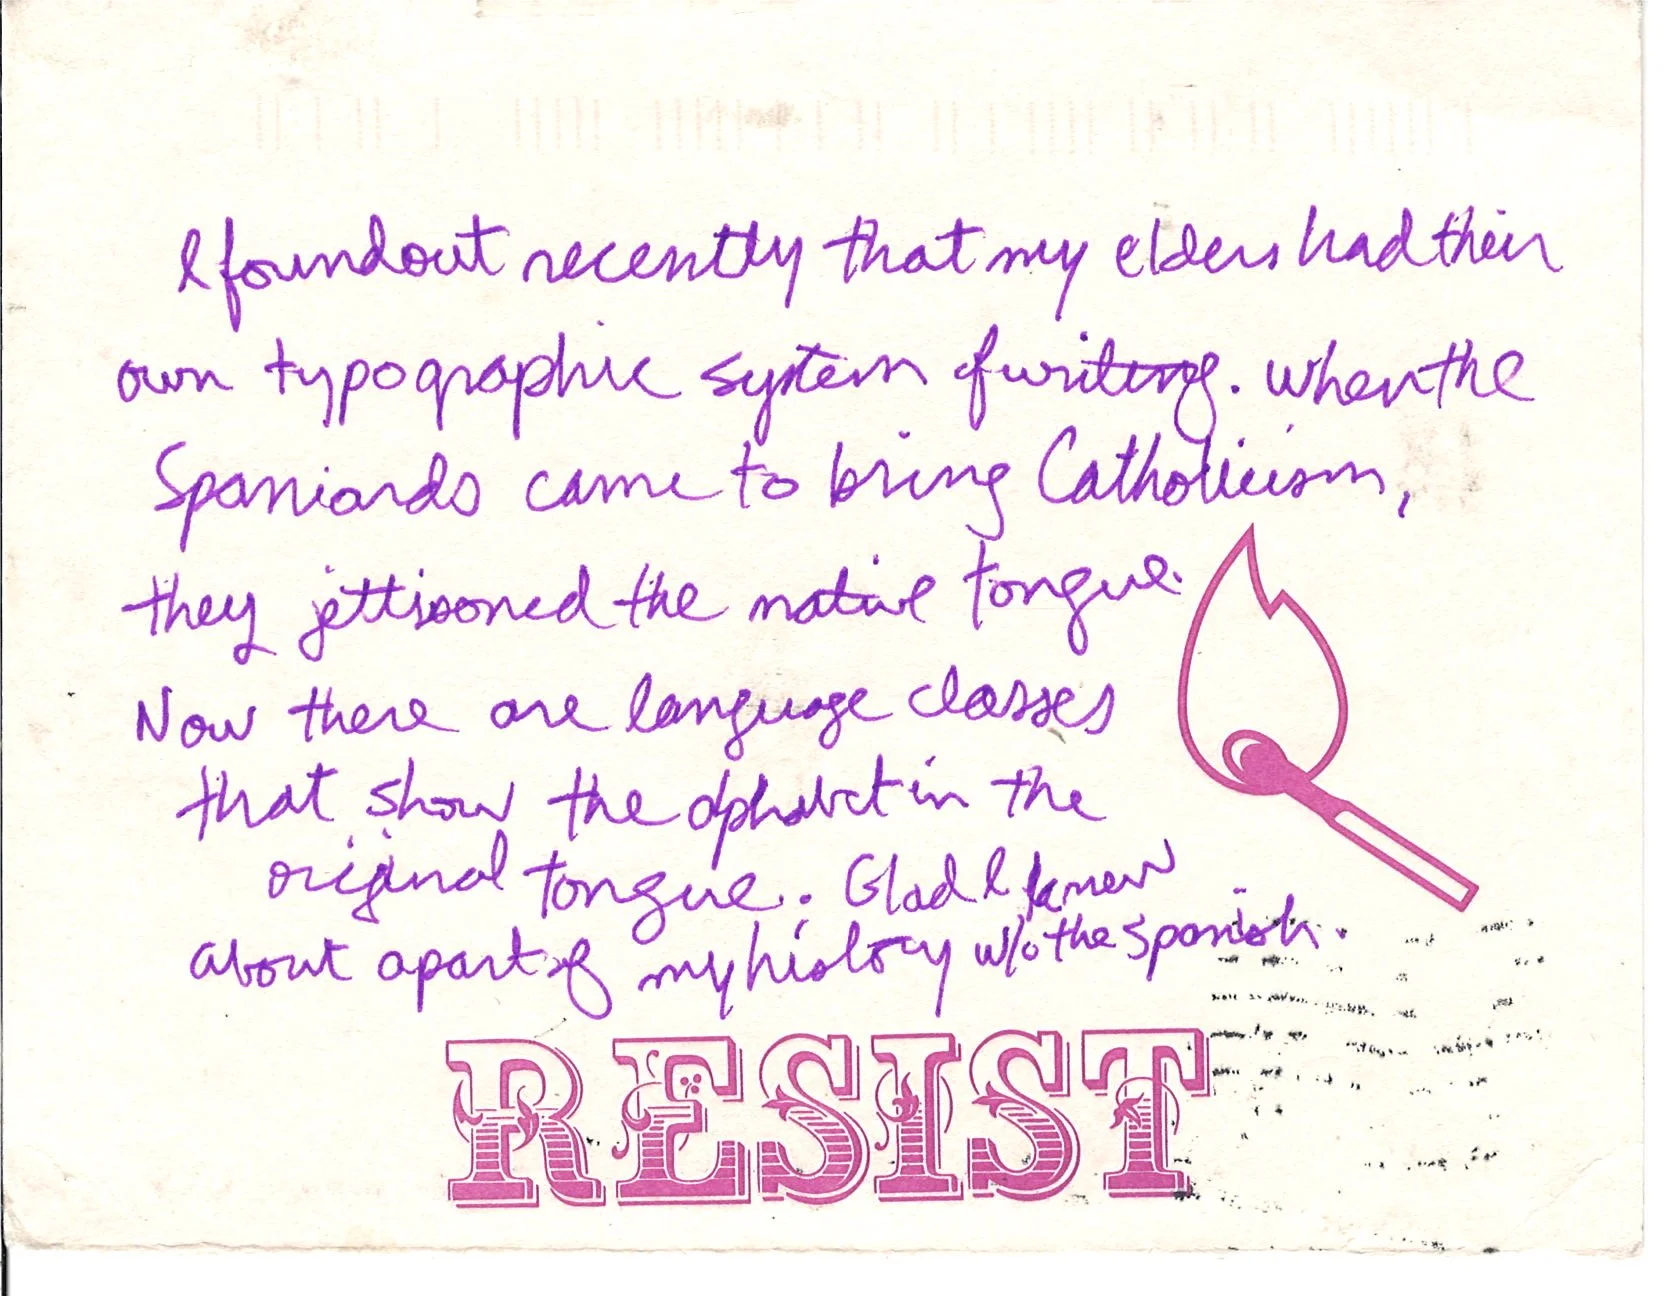 I found out recently that my elders had their
own typographic system of writing. When the
Spaniards came to bring Catholicism,
they jettisoned the native tongue.
Now there are language classes
that show the alphabet in the
original tongue. Glad I knew
about a part of my history w/o the Spanish.
RESIST